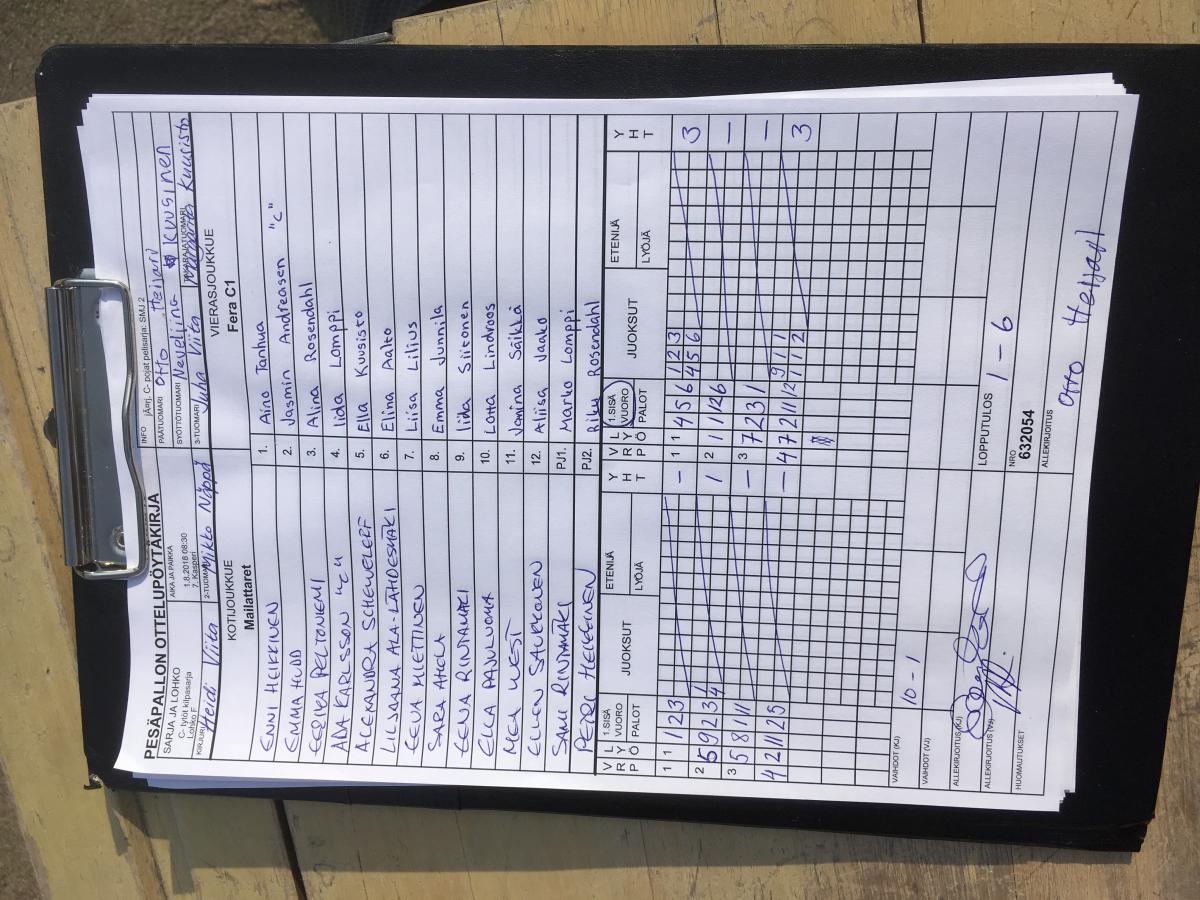 PESÄPALLON OTTELUPÖYTÄKIRJA
SARJA JA LOHKO
C- tytöt kilpasarja
Lohko F
AIKA JA PAIKKA
1.8.2018 08:30
7. Kasperi
INFO jÄrj, C- pojat pelisarja: SMJ 2
PÄÄTUOMARI Otto Heijari
SYÖTTÖTUOMARI Neveliina Kuusinen
KIRJURI Heidi Viita
2-TUOMARI Mikko Näppä
3-TUOMARI Juha Viita
TAKARAJATUOMARI Kuusisto
KOTIJOUKKUE
Mailattaret
VIERASJOUKKUE
Fera C1
ENNI HEIKKINEN 1. Aino Tanhua
EMMA HUDD 2. Jasmin Andreasen "C"
EEVIKA PELTONIEMI 3. Alina Rosendahl
ADA KARLSSON "C" 4. Iida Lomppi
ALEXANDRA SCHEWELEFF 5. Ella Kuusisto
LILJAANA ALA-LAHDESMÄKI 6. Elina Aalto
EEVA MIETTINEN 7. Liisa Lilius
SARA AHOLA 8. Emma Junnila
EEVA RINDAMÄKI 9. Iida Siitonen
ELLA PAJULUOMA 10. Lotta Lindroos
MEA WESTÖ 11. Jamina Saikkä
ELLEN SAUKKONEN 12. Aliisa Jaako
SAMI RINDAMÄKI PJ1. Marko Lomppi
PETRI HEIKKINEN PJ2. Riku Rosendahl
V R P L Y Ö 1.SISÄ VUORO PALOT JUOKSUT ETENIJÄ LYÖJÄ Y H T V R P L Y Ö 1.SISÄ VUORO PALOT JUOKSUT ETENIJÄ LYÖJÄ Y H T
1 1 1 2 3 — 1 1 4 5 6 1 2 3
4 5 6 3
2 5 9 2 3 4 1 1 2 1 1 12 6 —
3 5 8 11 11 — 3 7 2 3 1 —
4 2 11 12 5 — 4 7 2 11 12 9 11
1 1 2 3
VAIHDOT (KJ)
10 - 1
VAIHDOT (VJ)
LOPPUTULOS 1 - 6
ALLEKIRJOITUS (KJ)
ALLEKIRJOITUS (VJ)
NRO
632054
HUOMAUTUKSET
ALLEKIRJOITUS
Otto Heijari